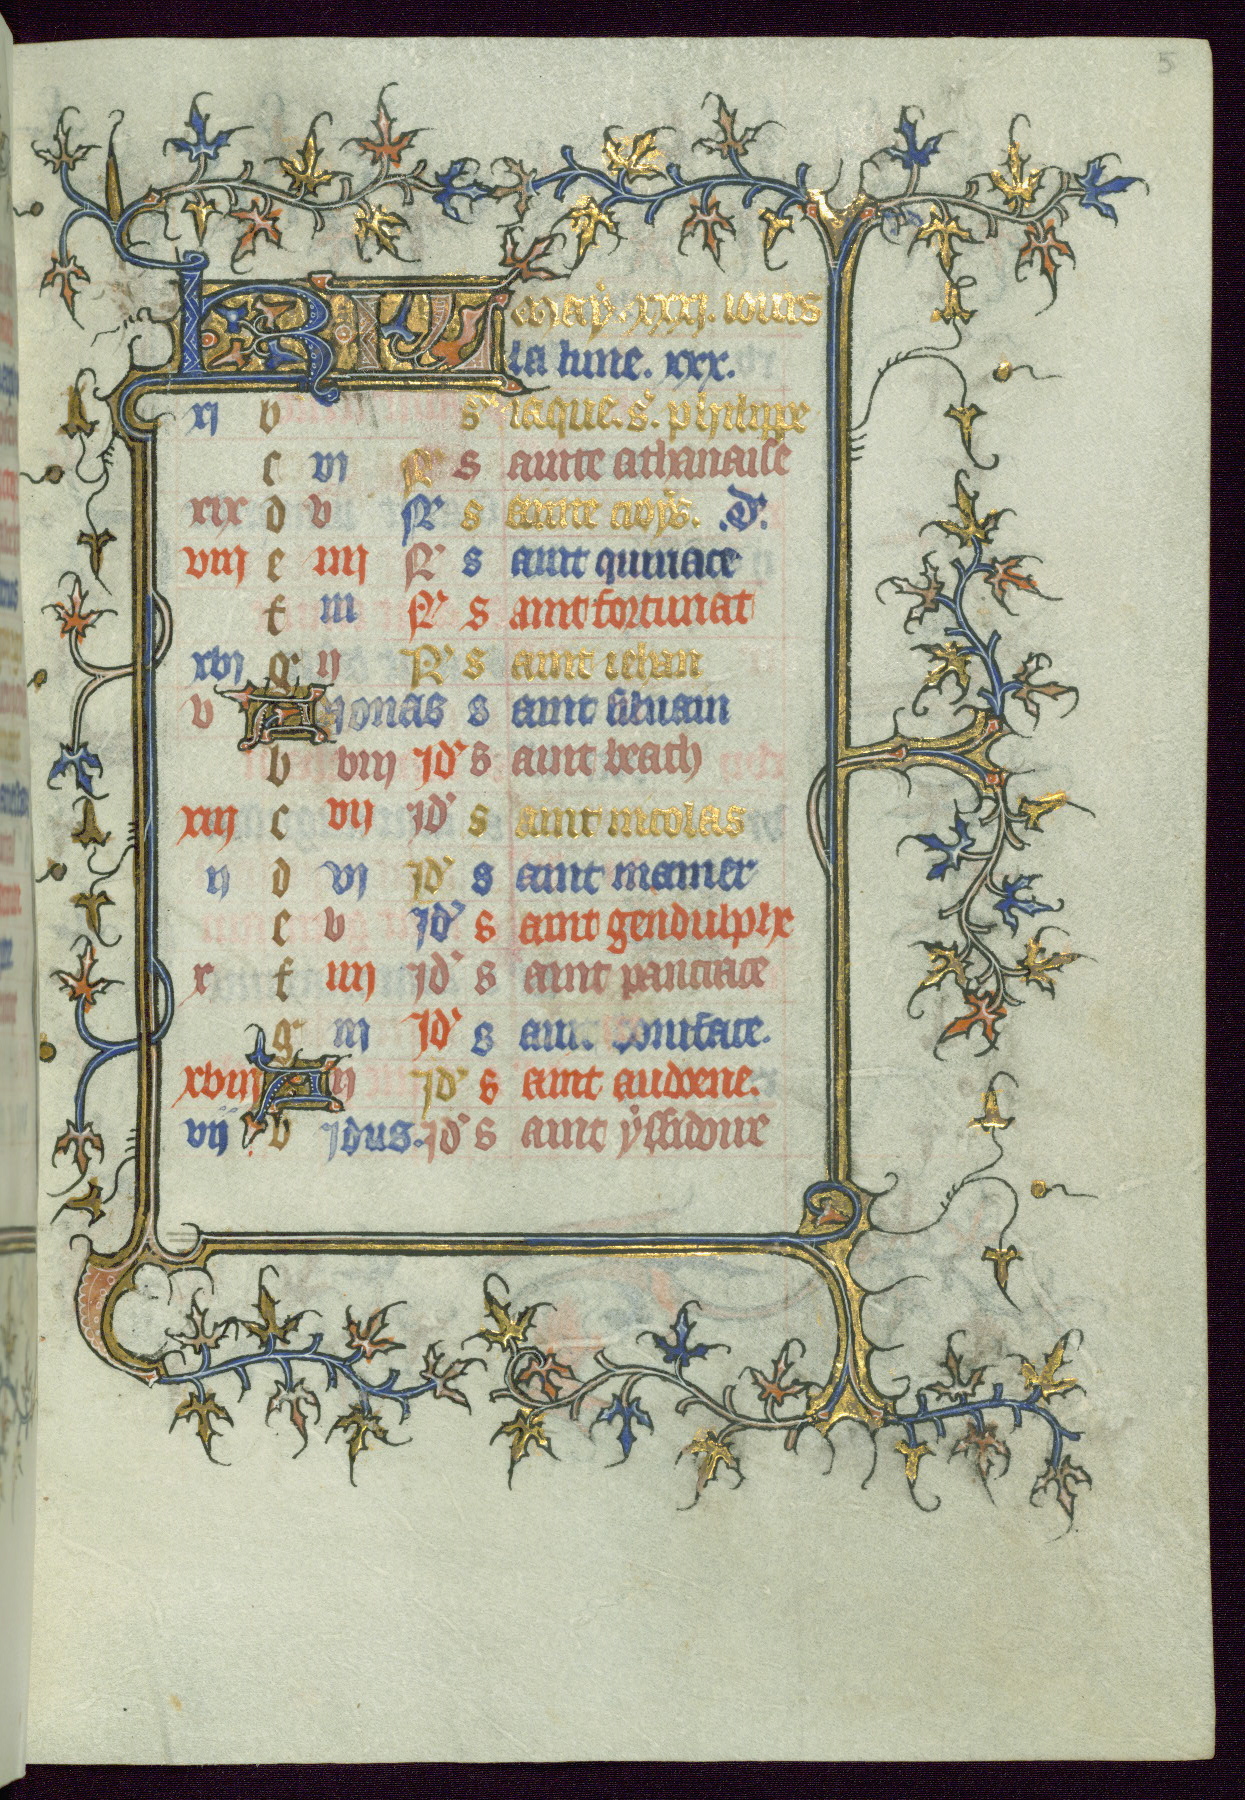 5
KL may. xxxi. iours
la lune. xxx.
xi b s. iaque. s. philippe
c vi N s ainte athanaise
xix d v N s ainte crois. .d.
viii e iiii N s aint quiriace
f iii N s aint fortunat
xvi g ii N s aint iehan
v A nonas s aint siluain
b viii id s aint beath
xiii c vii id s aint nicolas
ii d vi id s aint mamer
e v id s aint gendulphe
x f iiii id s aint pancrace
g iii id s aint boniface.
xviii A ii id s aint audoene.
vii b idus. id s aint yssidoire